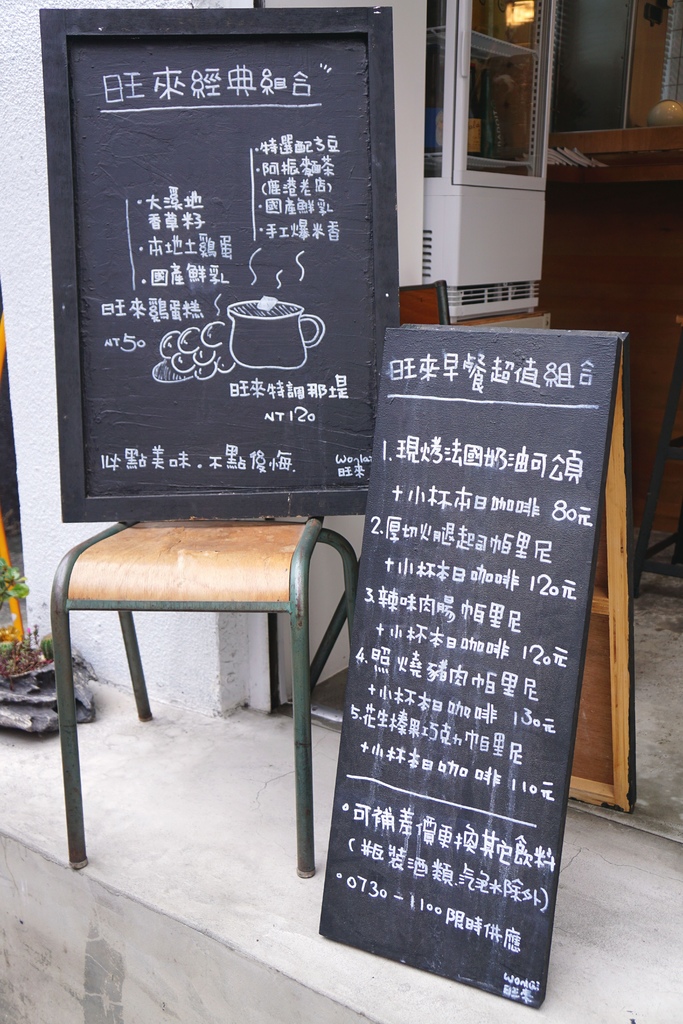 旺來經典組合
・特選配方豆
・阿振麵茶
(鹿港老店)
・國產鮮乳
・手工爆米香
・大溪地
香草籽
・本地土雞蛋
・國產鮮乳
旺來雞蛋糕
NT50
旺來特調那堤
NT120
必點美味．不點後悔.
Wonlai
旺來
旺來早餐超值組合
1.現烤法國奶油可頌
+小杯本日咖啡 80元
2.厚切火腿起司帕里尼
+小杯本日咖啡 120元
3.辣味肉腸帕里尼
+小杯本日咖啡 120元
4.照燒豬肉帕里尼
+小杯本日咖啡 130元
5.花生榛果巧克力帕里尼
+小杯本日咖啡 110元
・可補差價更換其它飲料
(瓶裝酒類.汽泡水除外)
・0730-1100限時供應
Wonlai
旺來